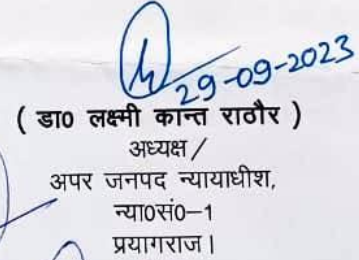 29-09-2023
( डा0 लक्ष्मी कान्त राठौर )
अध्यक्ष /
अपर जनपद न्यायाधीश,
न्या0सं0–1
प्रयागराज।